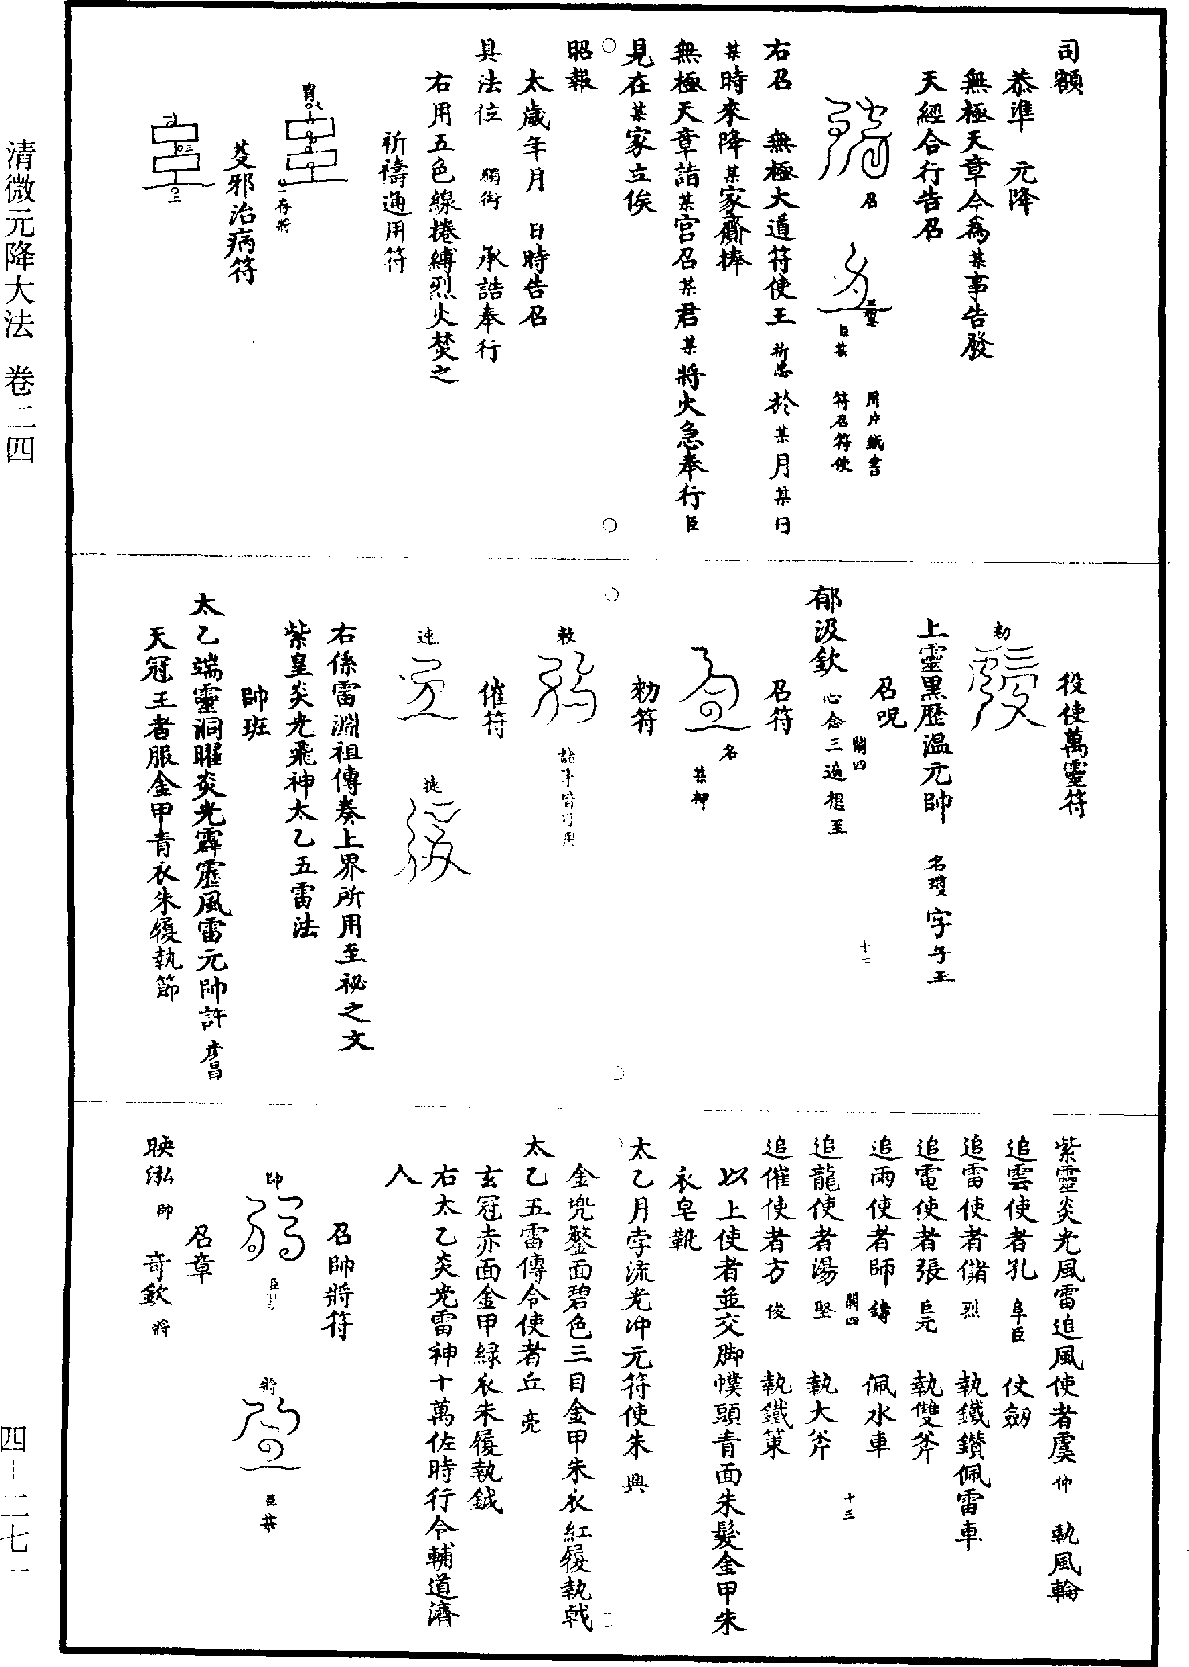 司額
恭準　元降
無極天章今為某事告發
天經合行告召
召
臣某
用片紙書
符召符使
右召　無極大道符使王　於某月某日
某時來降某家齋捧
無極天章詣某宫召某君某將火急奉行臣
見在某家立俟
昭報
太歲年月　日時告召
具法位　獨銜　承誥奉行
右用五色線捲縛烈火焚之
祈禱通用符
邪治病符
役使萬靈符
勑
上靈黑歷溫元帥　名瓊　字子玉
召呪
郁汲欽　心念三遍想至
關四
十二
召符
名
某押
勑符
敕
催符
速
捷
右係雷淵祖傳奏上界所用至祕之文
紫皇炎光飛神太乙五雷法
帥班
太乙端靈洞曜炎光霹靂風雷元帥許
天冠王者服金甲青衣朱履執節
紫靈炎光風雷追風使者虞仲　執風輪
追雲使者孔阜臣　仗劒
追雷使者儲烈　執鐵鑽佩雷車
追電使者張巨元　執雙斧
追雨使者師鑄　佩水車
追龍使者湯堅　執大斧
關四
十三
追催使者方俊　執鐵策
以上使者並交脚幞頭青面朱髮金甲朱
衣皂靴
太乙月孛流光冲元符使朱興
金兜鍪面碧色三目金甲朱衣紅履執戟
太乙五雷傳令使者丘亮
玄冠赤面金甲緑衣朱履執鉞
右太乙炎光雷神十萬佐時行令輔道濟
人
召帥將符
帥
將
臣某
召章
映泓帥　奇欽將
清微元降大法　卷二四
四—二七一